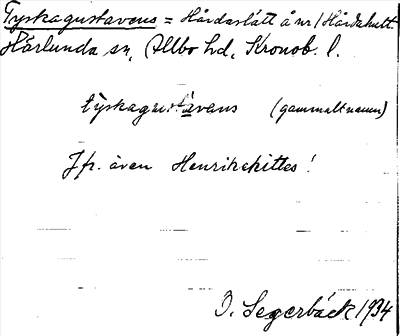 Tyskagustavens = Hårdaslätt å nr 1 Hårdahult.
Härlunda sn, Allbo hd, Kronob. l.
tyskagustavens (gammalt namn)
Jfr. även Henrikekittes!
O. Segerbäck 1934